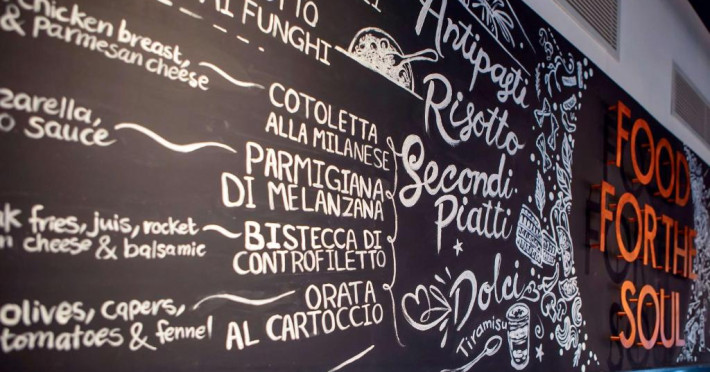 FUNGHI
chicken breast,
& Parmesan cheese
COTOLETTA
ALLA MILANESE
sauce
PARMIGIANA
DI MELANZANA
fries, juis, rocket
cheese & balsamic
BISTECCA DI
CONTROFILETTO
olives, capers,
tomatoes & fennel
ORATA
AL CARTOCCIO
Antipasti
Risotto
Secondi
Piatti
Dolci
Tiramisu
FOOD
FOR THE
SOUL